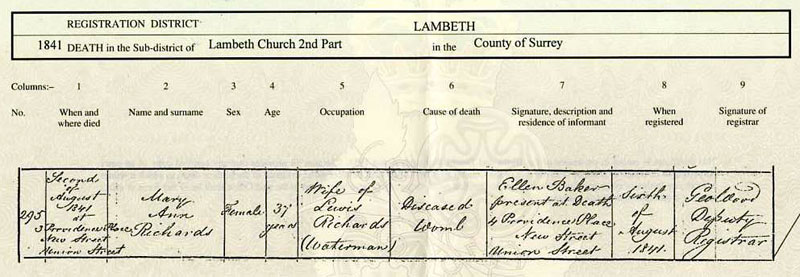 REGISTRATION DISTRICT LAMBETH
1841 DEATH in the Sub-district of Lambeth Church 2nd Part in the County of Surrey
Columns:- 1 2 3 4 5 6 7 8 9
No. When and where died Name and surname Sex Age Occupation Cause of death Signature, description and residence of informant When registered Signature of registrar
295
Second
of
August
1841
at
3 Providence Place
New Street
Union Street
Mary
Ann
Richards
Female
37
years
Wife of
Lewis
Richards
(Waterman)
Diseased
Womb
Ellen Baker
present at Death
4 Providence Place
New Street
Union Street
Sixth
of
August
1841.
Deputy
Registrar